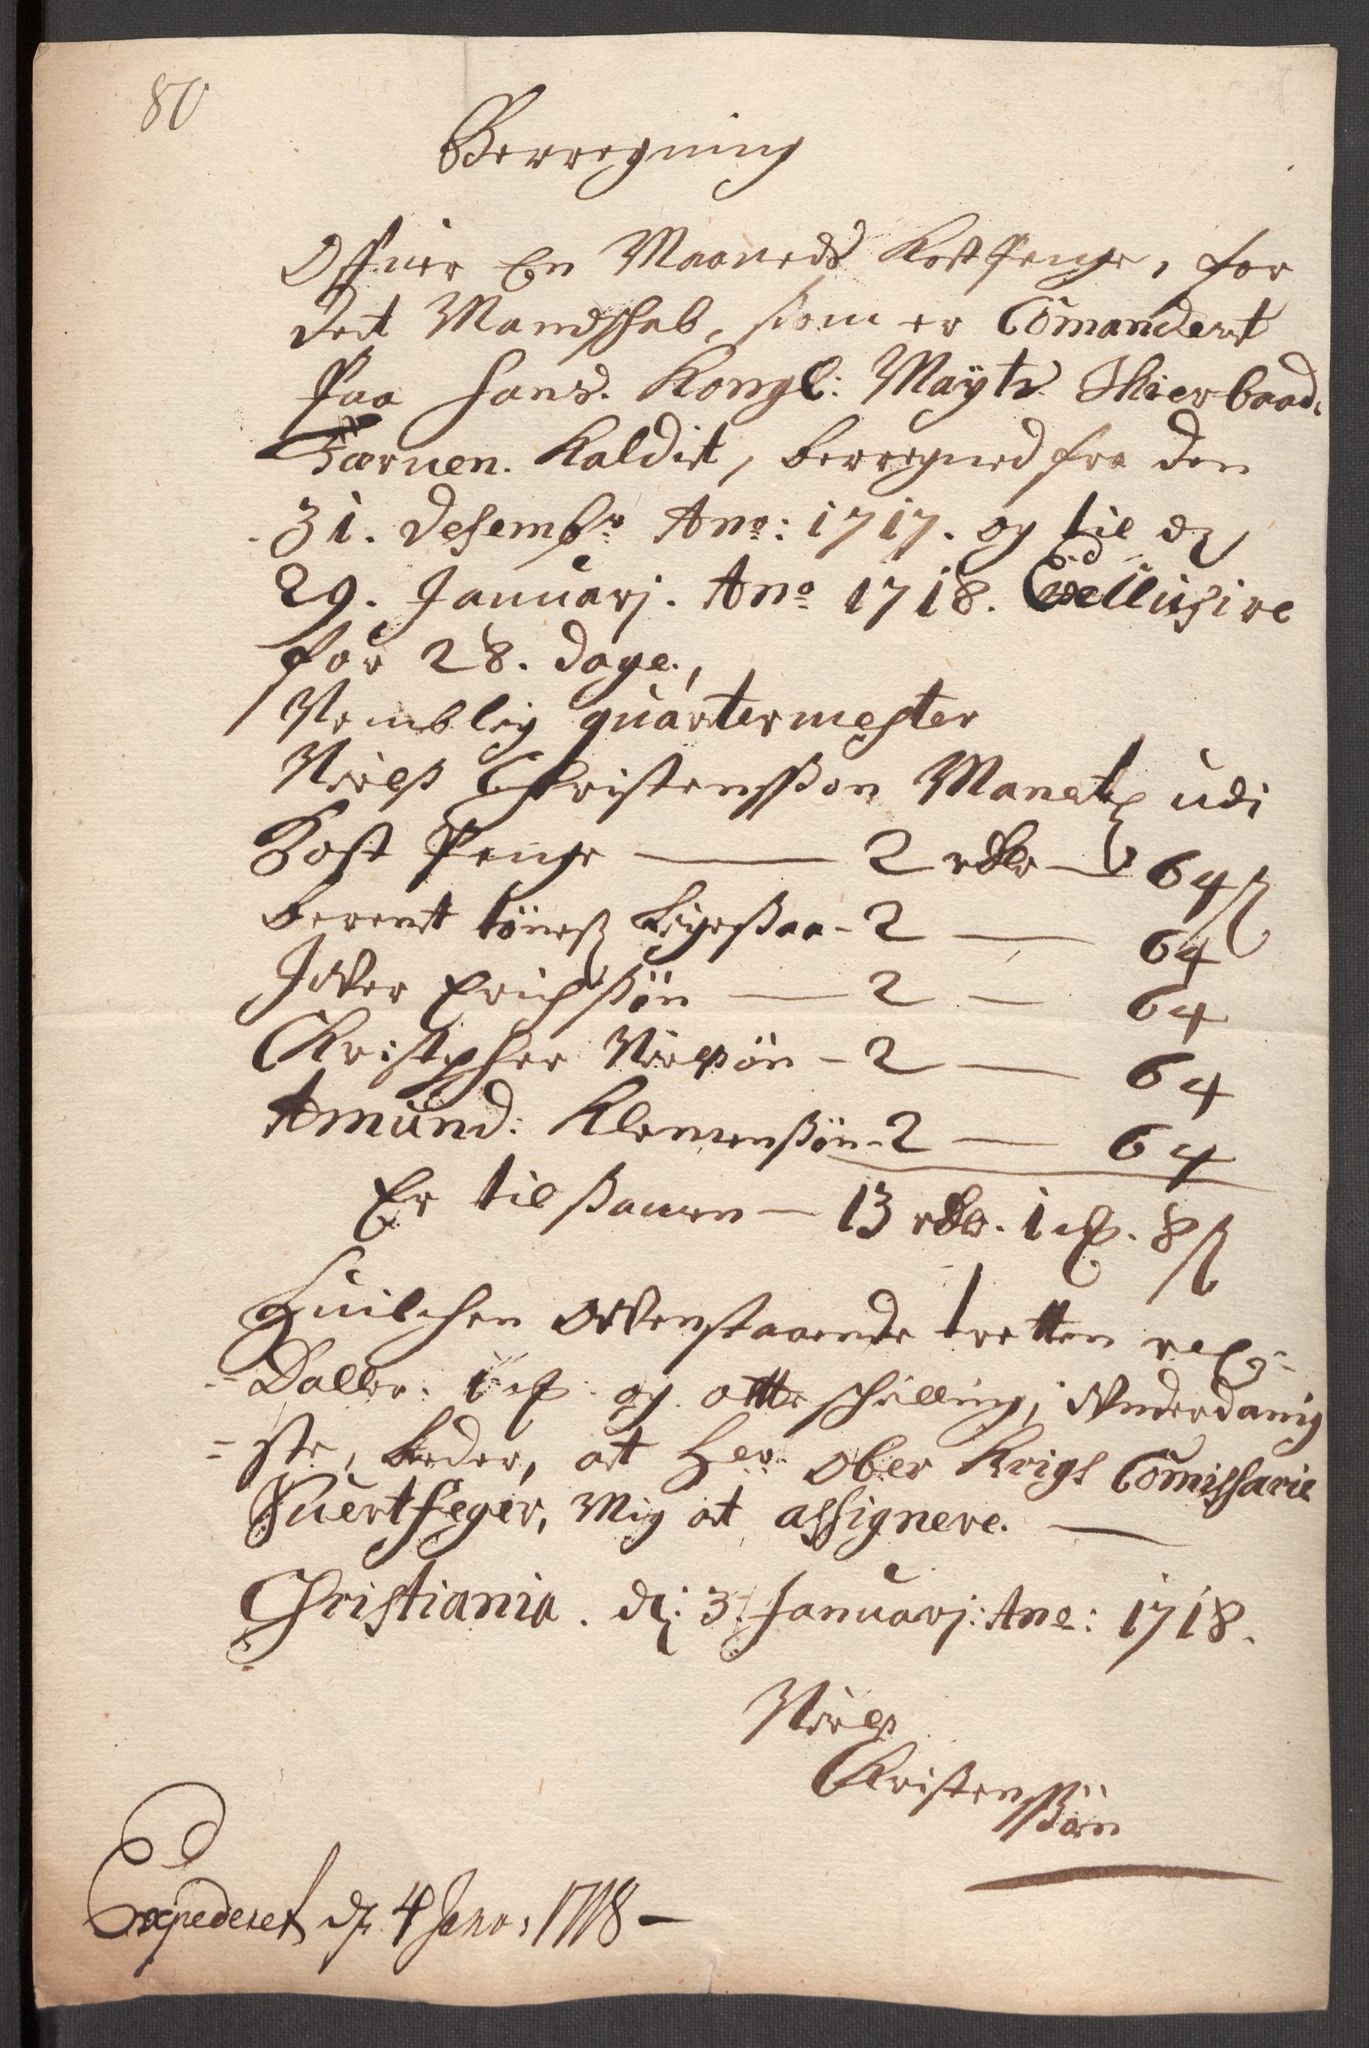 80
Berregning
Offuer En Maaneds Kost Penge, for
det Mandschab, som er Comandert
paa Hans. Kongl: Mayts Skierbaad,
Tærnen. Kaldit, berregned fra den
31. Desembr Ano: 1717. og til d
29. Januarj. Ano 1718.
for 28. dage.,
Nemblig quartermester
Nielß Christensßøn Manet udi
Kost Penge — 2 rdlr — 64 ß
berent tönneß Ligeßaa - 2 — 64
Jwer Erichßön — 2 — 64
Christpher Nielßön - 2 — 64
Amund: Klemenßön - 2 — 64
Er tilßamen — 13 rdlr. 1 . 8 ß
Huilchen Ovenstaaende tretten
Daller. 1 og otte schilling, Vnderdanig
ste, beder, at Her Ober Krigs Comissarie
Suertfeger, Mig at assignere. —
Christiania. d: 3. Januarj: Ano: 1718.
Nielß
Christensßøn
Expederet d. 4 Janv: 1718 —